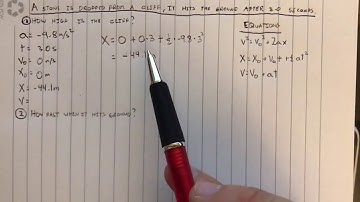 A STONE IS DROPPED FROM A CLIFF, IT HITS THE GROUND AFTER 3.0 SECONDS.
① HOW HIGH IS THE CLIFF?
a = -9.8 m/s²
t = 3.0 s
V₀ = 0 m/s
X₀ = 0 m
X = -44.1m
V =
② HOW FAST WHEN IT HITS GROUND?
X = 0 + 0·3 + ½·-9.8·3²
= -44.1
EQUATIONS
V² = V₀² + 2ax
X = X₀ + V₀t + ½at²
V = V₀ + at